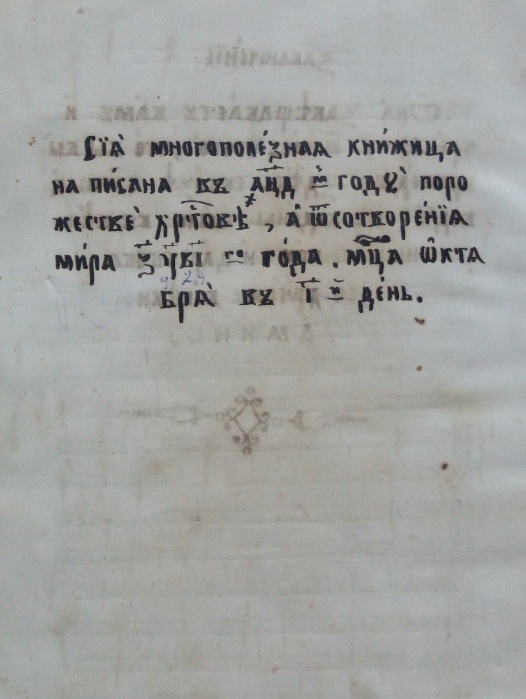 Сїѧ̀ многополе́знаѧ кни́жица
на пи́сана въ а҃цд й годꙋ̀ поро
жествѐ хрⷭ҇товѣ , а҆ ѿсотворе́нїѧ
ми́ра з҃ у҃в҃і го го́да . мц҃а ѻ҆кта
брѧ̀ въ і҃ й де́нь .